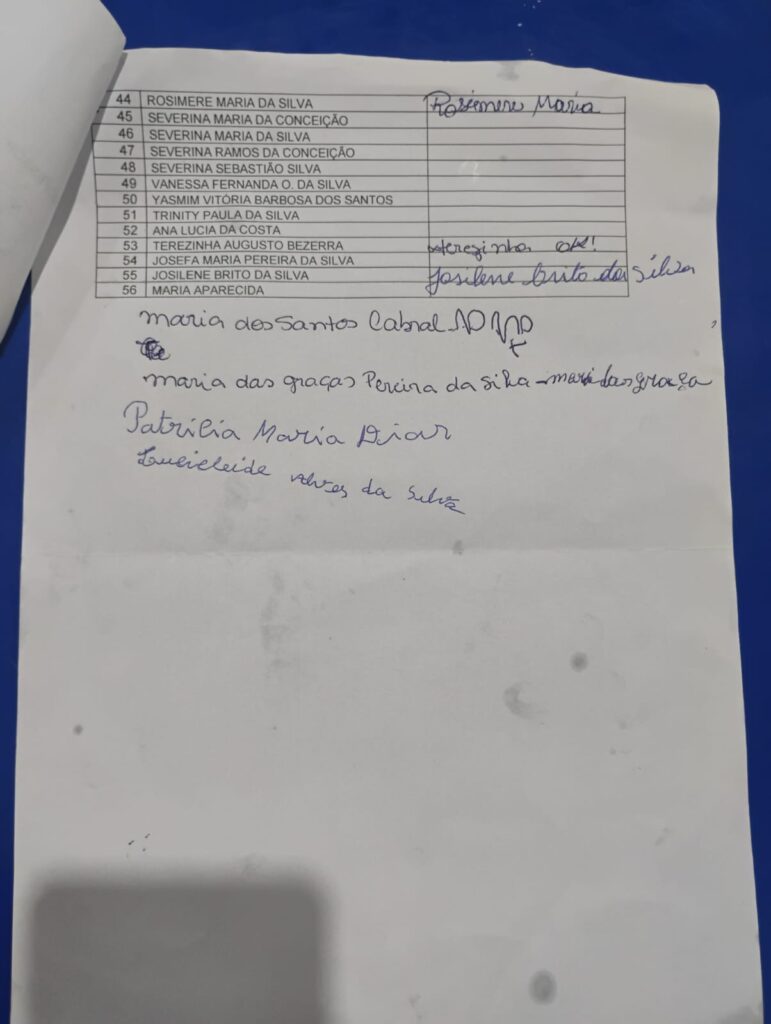 44 ROSIMERE MARIA DA SILVA Rosimere Maria
45 SEVERINA MARIA DA CONCEIÇÃO
46 SEVERINA MARIA DA SILVA
47 SEVERINA RAMOS DA CONCEIÇÃO
48 SEVERINA SEBASTIÃO SILVA
49 VANESSA FERNANDA O. DA SILVA
50 YASMIM VITÓRIA BARBOSA DOS SANTOS
51 TRINITY PAULA DA SILVA
52 ANA LUCIA DA COSTA
53 TEREZINHA AUGUSTO BEZERRA terezinha ok!
54 JOSEFA MARIA PEREIRA DA SILVA
55 JOSILENE BRITO DA SILVA Josilene brito da Silva
56 MARIA APARECIDA
maria dos Santos Cabral
maria das graças Pereira da silva - maria das graça
Maria
Lucicleide Alves da Silva